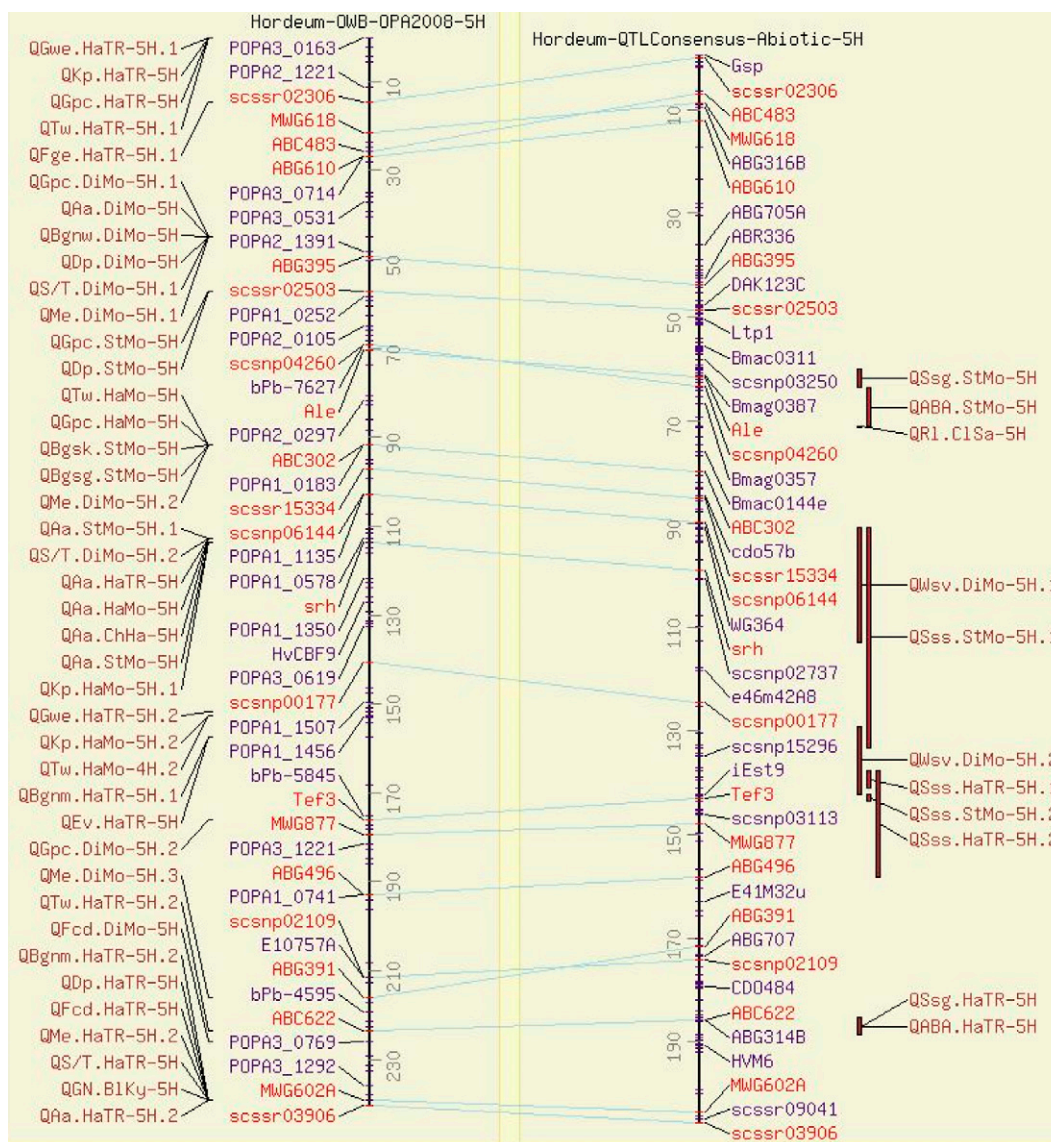 Hordeum-OWB-OPA2008-5H
Hordeum-QTLConsensus-Abiotic-5H
QGwe.HaTR-5H.1
QKp.HaTR-5H
QGpc.HaTR-5H
QTw.HaTR-5H.1
QFge.HaTR-5H.1
QGpc.DiMo-5H.1
QAa.DiMo-5H
QBgnw.DiMo-5H
QDp.DiMo-5H
QS/T.DiMo-5H.1
QMe.DiMo-5H.1
QGpc.StMo-5H
QDp.StMo-5H
QTw.HaMo-5H
QGpc.HaMo-5H
QBgsk.StMo-5H
QBgsg.StMo-5H
QMe.DiMo-5H.2
QAa.StMo-5H.1
QS/T.DiMo-5H.2
QAa.HaTR-5H
QAa.HaMo-5H
QAa.ChHa-5H
QAa.StMo-5H
QKp.HaMo-5H.1
QGwe.HaTR-5H.2
QKp.HaMo-5H.2
QTw.HaMo-4H.2
QBgnm.HaTR-5H.1
QEv.HaTR-5H
QGpc.DiMo-5H.2
QMe.DiMo-5H.3
QTw.HaTR-5H.2
QFcd.DiMo-5H
QBgnm.HaTR-5H.2
QDp.HaTR-5H
QFcd.HaTR-5H
QMe.HaTR-5H.2
QS/T.HaTR-5H
QGN.BlKy-5H
QAa.HaTR-5H.2
POPA3_0163
POPA2_1221
scssr02306
MWG618
ABC483
ABG610
POPA3_0714
POPA3_0531
POPA2_1391
ABG395
scssr02503
POPA1_0252
POPA2_0105
scsnp04260
bPb-7627
Ale
POPA2_0297
ABC302
POPA1_0183
scssr15334
scsnp06144
POPA1_1135
POPA1_0578
srh
POPA1_1350
HvCBF9
POPA3_0619
scsnp00177
POPA1_1507
POPA1_1456
bPb-5845
Tef3
MWG877
POPA3_1221
ABG496
POPA1_0741
scsnp02109
E10757A
ABG391
bPb-4595
ABC622
POPA3_0769
POPA3_1292
MWG602A
scssr03906
10
30
50
70
90
110
130
150
170
190
210
230
10
30
50
70
90
110
130
150
170
190
Gsp
scssr02306
ABC483
MWG618
ABG316B
ABG610
ABG705A
ABR336
ABG395
DAK123C
scssr02503
Ltp1
Bmac0311
scsnp03250
Bmag0387
Ale
scsnp04260
Bmag0357
Bmac0144e
ABC302
cdo57b
scssr15334
scsnp06144
WG364
srh
scsnp02737
e46m42A8
scsnp00177
scsnp15296
iEst9
Tef3
scsnp03113
MWG877
ABG496
E41M32u
ABG391
ABG707
scsnp02109
CDO484
ABC622
ABG314B
HVM6
MWG602A
scssr09041
scssr03906
QSsg.StMo-5H
QABA.StMo-5H
QRl.ClSa-5H
QWsv.DiMo-5H.1
QSss.StMo-5H.1
QWsv.DiMo-5H.2
QSss.HaTR-5H.1
QSss.StMo-5H.2
QSss.HaTR-5H.2
QSsg.HaTR-5H
QABA.HaTR-5H